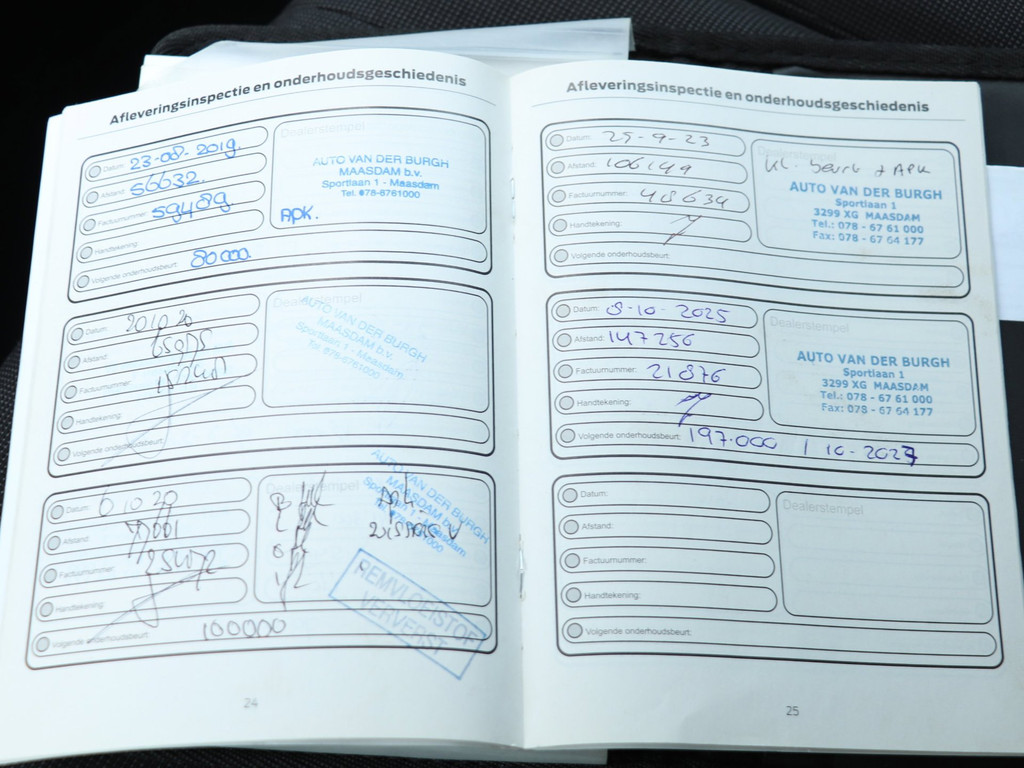 Afleveringsinspectie en onderhoudsgeschiedenis
Datum: 23-08-2019.
Afstand: 56632.
Factuurnummer: 59489
Handtekening:
Volgende onderhoudsbeurt: 80000.
Dealerstempel
AUTO VAN DER BURGH
MAASDAM b.v.
Sportlaan 1 - Maasdam
Tel. 078-6761000
APK.
Datum:
Afstand:
Factuurnummer:
Handtekening:
Volgende onderhoudsbeurt:
Dealerstempel
AUTO VAN DER BURGH
MAASDAM b.v.
Sportlaan 1 - Maasdam
Tel. 078-6761000
Datum:
Afstand:
Factuurnummer:
Handtekening:
Volgende onderhoudsbeurt: 100000
AUTO VAN DER BURGH
MAASDAM b.v.
REMVLOEISTOF
VERVERST
24
Afleveringsinspectie en onderhoudsgeschiedenis
Datum: 25-9-23
Afstand: 106149
Factuurnummer: 48634
Handtekening:
Volgende onderhoudsbeurt:
Dealerstempel
KL. beurt + APK
AUTO VAN DER BURGH
Sportlaan 1
3299 XG MAASDAM
Tel.: 078 - 67 61 000
Fax: 078 - 67 64 177
Datum: 8-10-2025
Afstand: 147256
Factuurnummer: 21876
Handtekening:
Volgende onderhoudsbeurt: 197.000 / 10-2027
Dealerstempel
AUTO VAN DER BURGH
Sportlaan 1
3299 XG MAASDAM
Tel.: 078 - 67 61 000
Fax: 078 - 67 64 177
Datum:
Afstand:
Factuurnummer:
Handtekening:
Volgende onderhoudsbeurt:
Dealerstempel
25